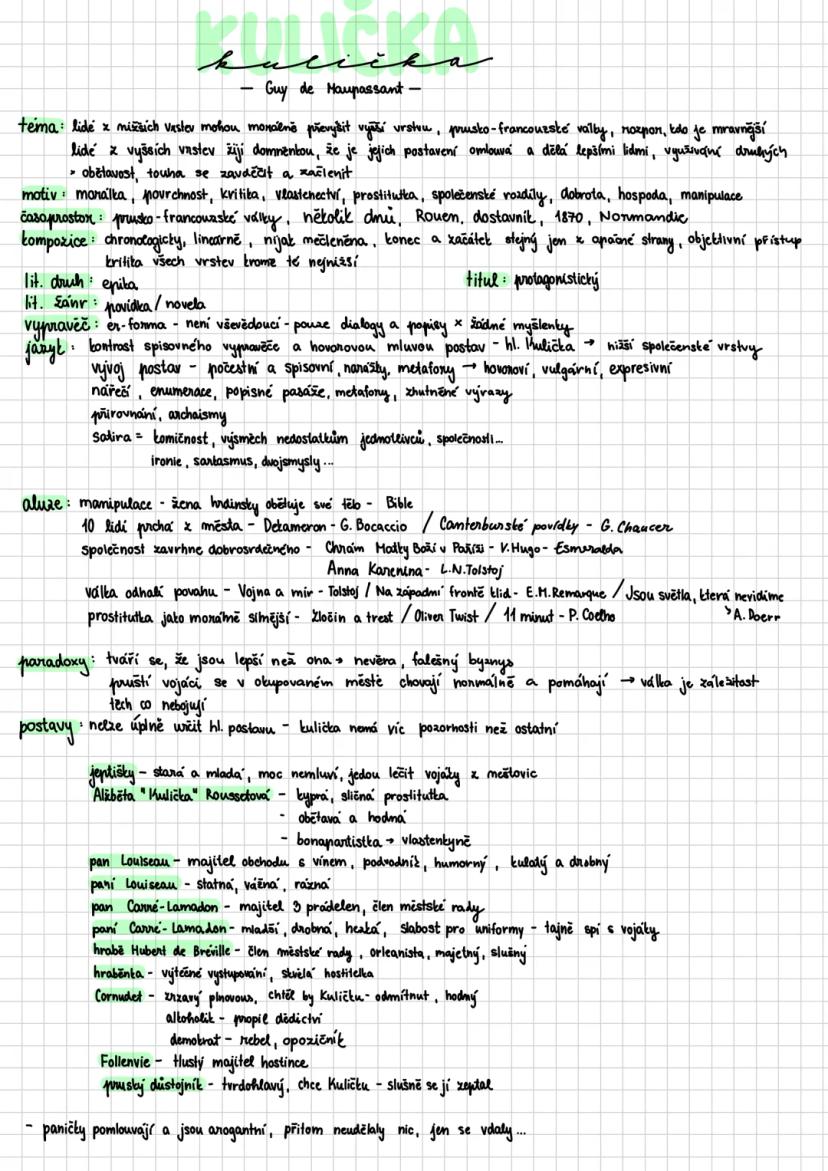 KULIČKA
kulička
— Guy de Maupassant —
téma: lidé z nižších vrstev mohou morálně převýšit vyšší vrstvu, prusko-francouzské války, rozpor, kdo je mravnější
lidé z vyšších vrstev žijí domněnkou, že je jejich postavení omlouvá a dělá lepšími lidmi, využívání druhých
> obětavost, touha se zavděčit a začlenit
motiv: morálka, povrchnost, kritika, vlastenectví, prostitutka, společenské rozdíly, dobrota, hospoda, manipulace
časoprostor: prusko-francouzské války, několik dnů, Rouen, dostavník, 1870, Normandie
kompozice: chronologicky, lineárně, nijak nečleněna, konec a začátek stejný jen z opačné strany, objektivní přístup
kritika všech vrstev krome té nejnižší
lit. druh: epika titul: protagonistický
lit. žánr: povídka/novela
vypravěč: er-forma - není vševědoucí - pouze dialogy a popisy × žádné myšlenky
jazyk: kontrast spisovného vypravěče a hovorovou mluvou postav - hl. Kulička → nižší společenské vrstvy
vývoj postav - počestní a spisovní, narážky, metafory → hovoroví, vulgární, expresivní
nářečí, enumerace, popisné pasáže, metafory, zhutněné výrazy
přirovnání, archaismy
satira = komičnost, výsměch nedostatkům jednotlivců, společnosti...
ironie, sarkasmus, dvojsmysly...
aluze: manipulace - žena hrdinsky obětuje své tělo - Bible
10 lidí prchá z města - Dekameron - G. Bocaccio / Canterburské povídky - G. Chaucer
společnost zavrhne dobrosrdečného - Chrám Matky Boží v Paříži - V. Hugo - Esmeralda
Anna Karenina - L.N.Tolstoj
válka odhalí povahu - Vojna a mír - Tolstoj / Na západní frontě klid - E.M.Remarque / Jsou světla, která nevidíme
prostitutka jako morálně silnější - Zločin a trest / Oliver Twist / 11 minut - P. Coelho ↳ A. Doerr
paradoxy: tváří se, že jsou lepší než ona → nevěra, falešný byznys
pruští vojáci se v okupovaném městě chovají normálně a pomáhají → válka je záležitost
těch co nebojují
postavy: nelze úplně určit hl. postavu - kulička nemá víc pozornosti než ostatní
jeptišky - stará a mladá, moc nemluví, jedou léčit vojáky z neštovic
Alžběta "Kulička" Roussetová - kyprá, sličná prostitutka
- obětavá a hodná
- bonapartistka → vlastenkyně
pan Louiseau - majitel obchodu s vínem, podvodník, humorný, kulatý a drobný
paní Louiseau - statná, vážná, rázná
pan Carré-Lamadon - majitel 3 prádelen, člen městské rady
paní Carré-Lamadon - mladší, drobná, hezká, slabost pro uniformy - tajně spí s vojáky
hrabě Hubert de Bréville - člen městské rady, orleanista, majetný, slušný
hraběnka - výtečné vystupování, skvělá hostitelka
Cornudet - zrzavý plnovous, chtěl by Kuličku - odmítnut, hodný
alkoholik - propil dědictví
demokrat - rebel, opozičník
Follenvie - tlustý majitel hostince
pruský důstojník - tvrdohlavý, chce Kuličku - slušně se jí zeptal
- paničky pomlouvají a jsou arogantní, přitom neudělaly nic, jen se vdaly...